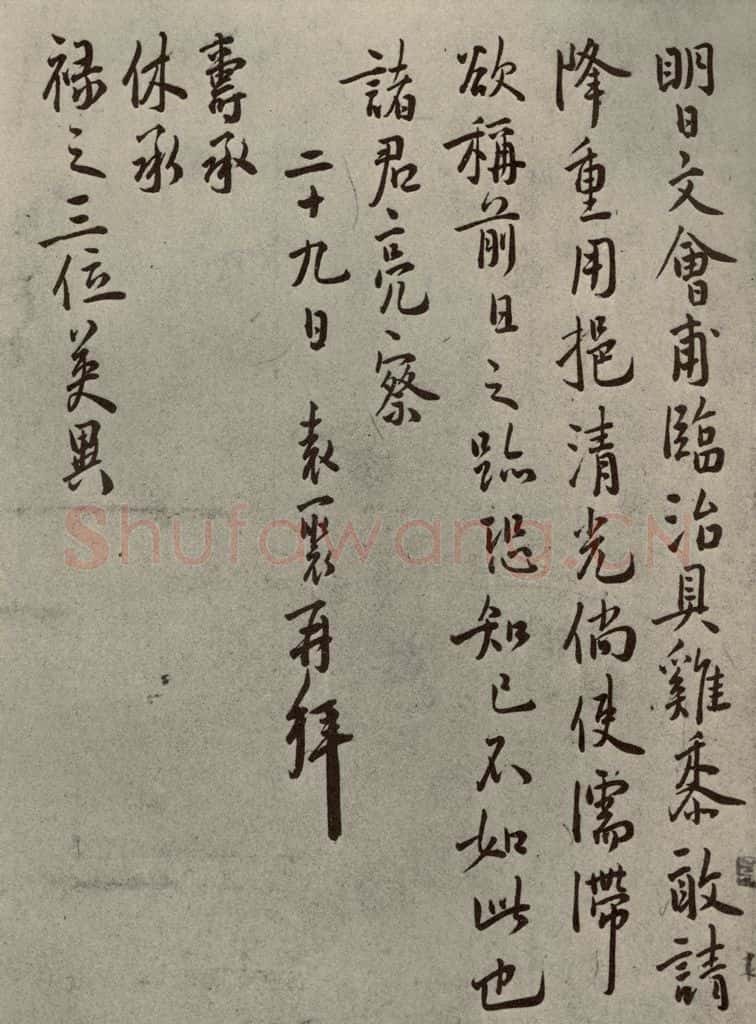 明日文會甫臨治具雞黍敢請
降重用挹清光倘使濡滯
欲稱前日之跡恐知己不如此也
諸君亮察
二十九日 袁褧再拜
壽承
休承
祿之三位英異
Shufawang.CN